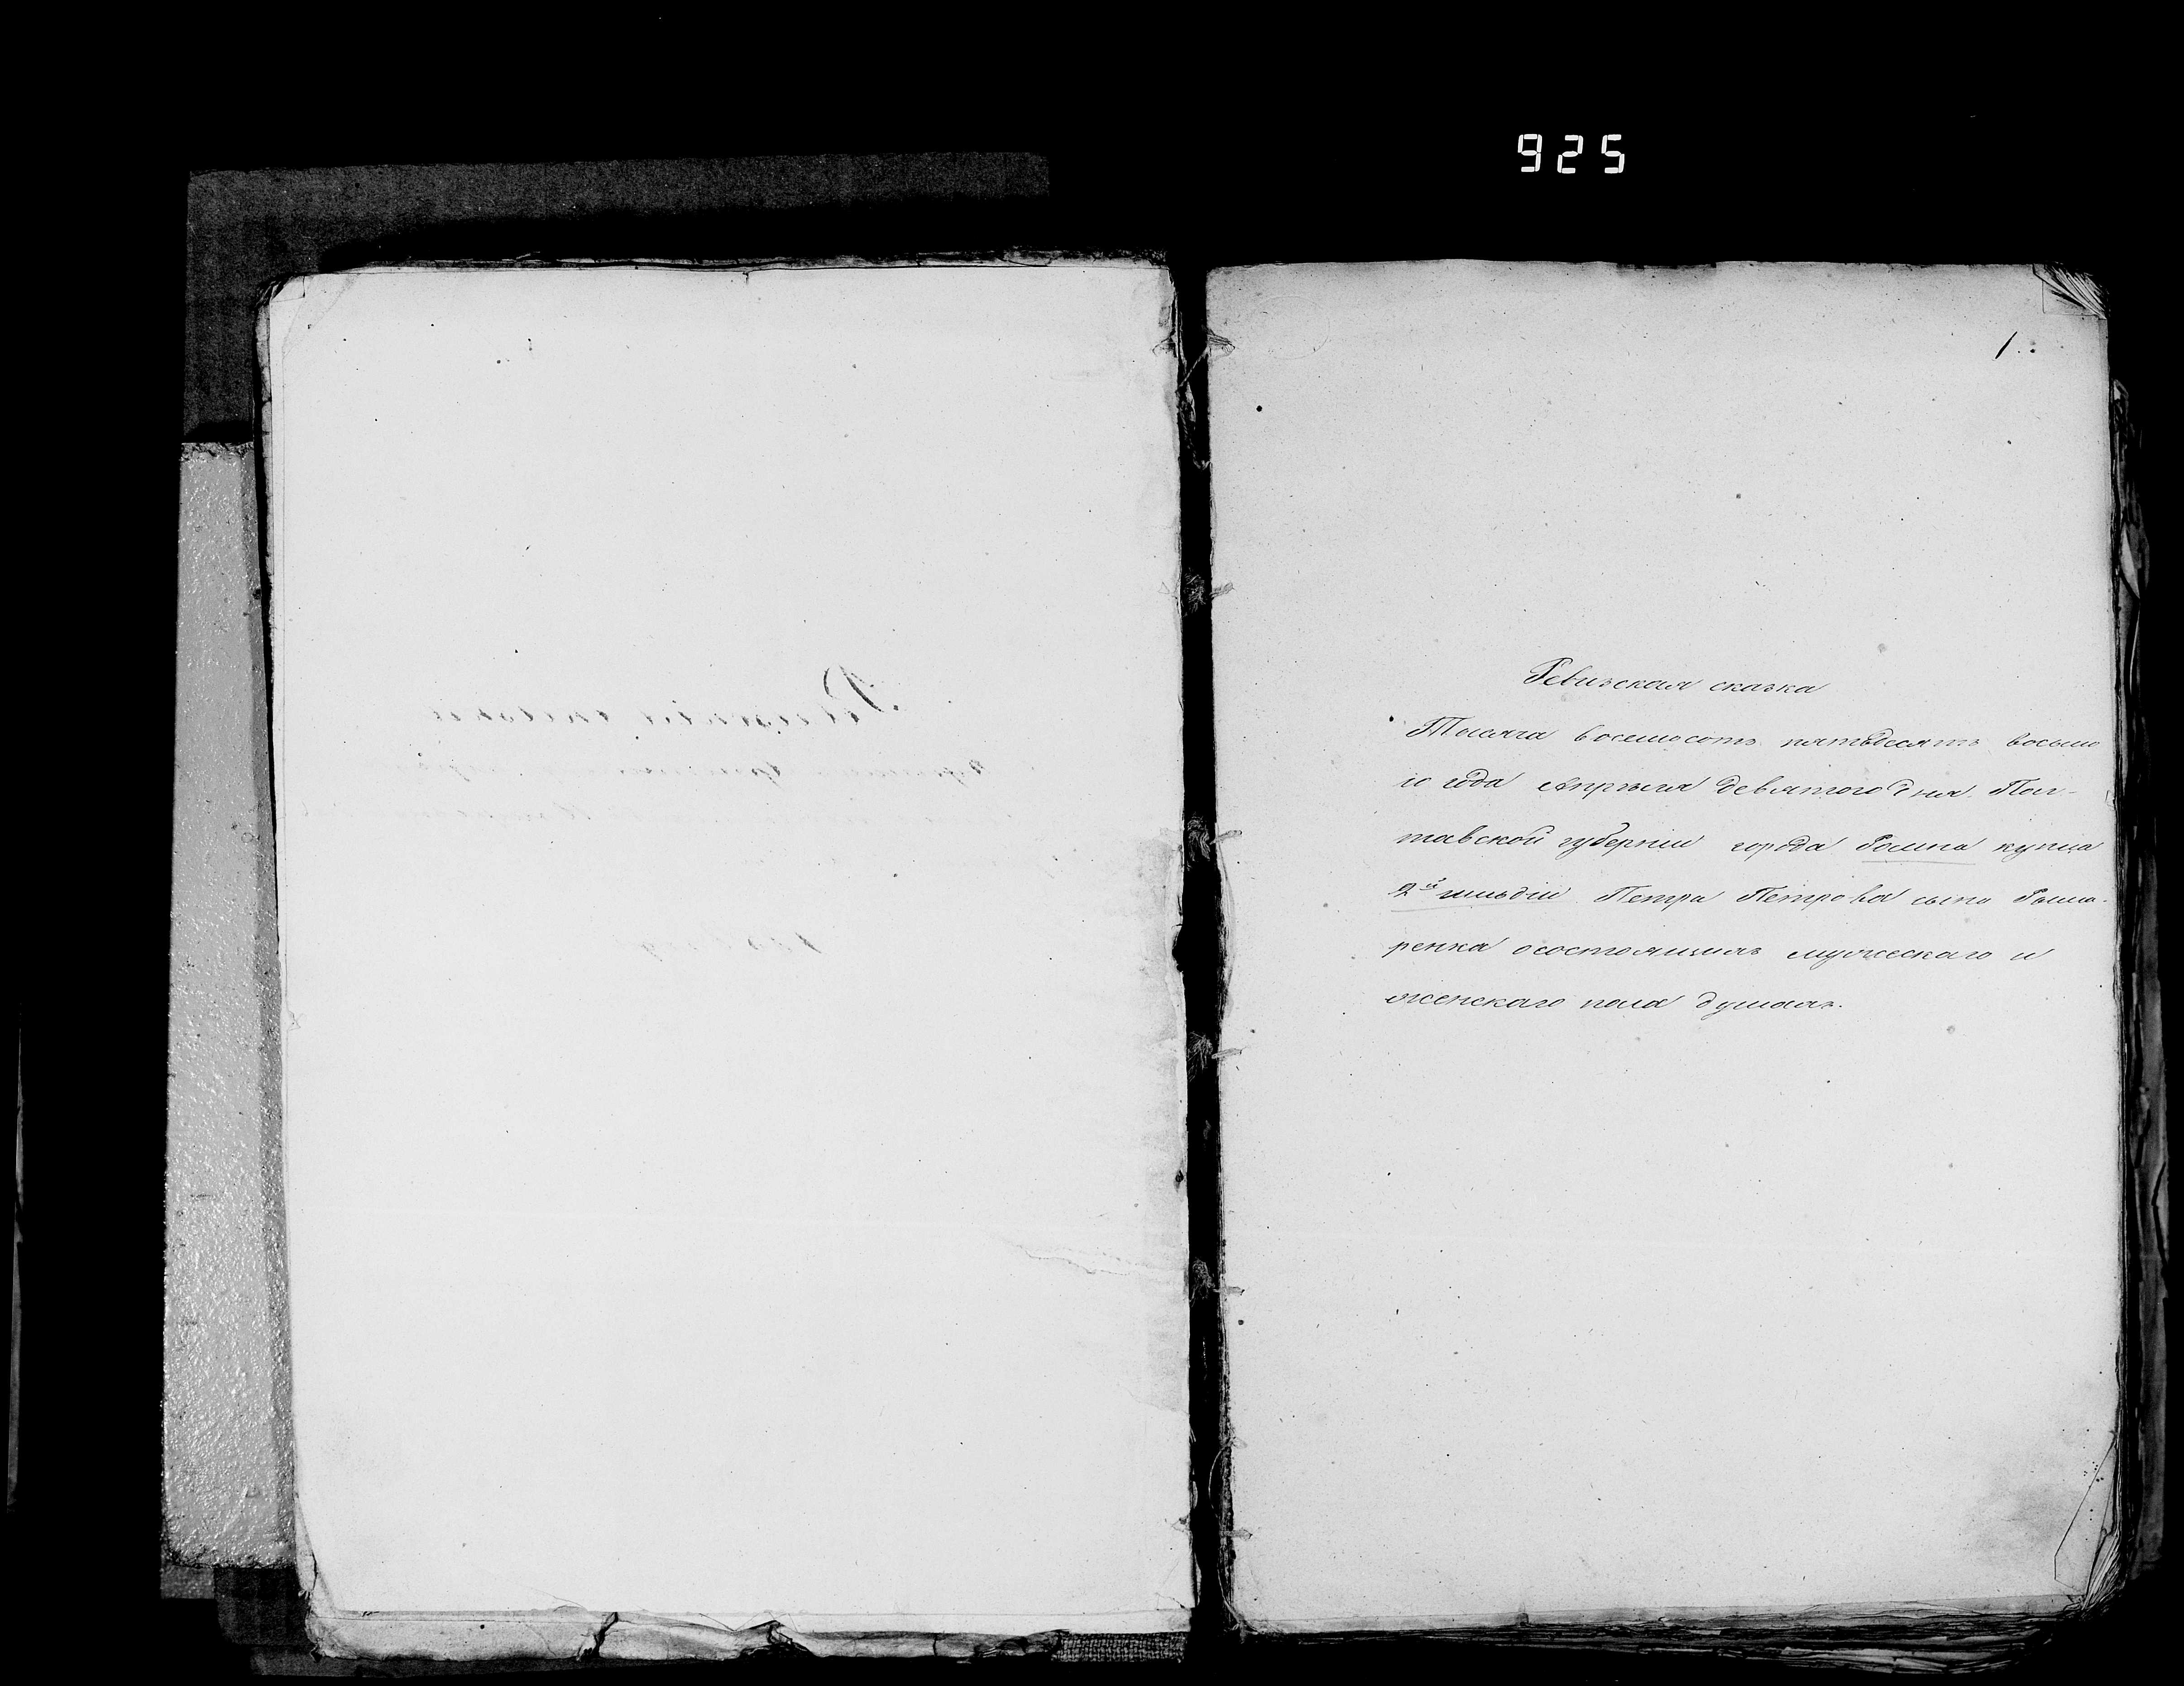 925
1.
Ревизская сказка
Тысяча восемьсотъ пятьдесятъ восьмо
го года Апрѣля девятого дня. Пол-
тавской губерніи города Ромна купца
2й гильдіи Петра Петрова сына Рыма-
ренка осостоящихъ мужескаго и
женскаго пола душахъ.